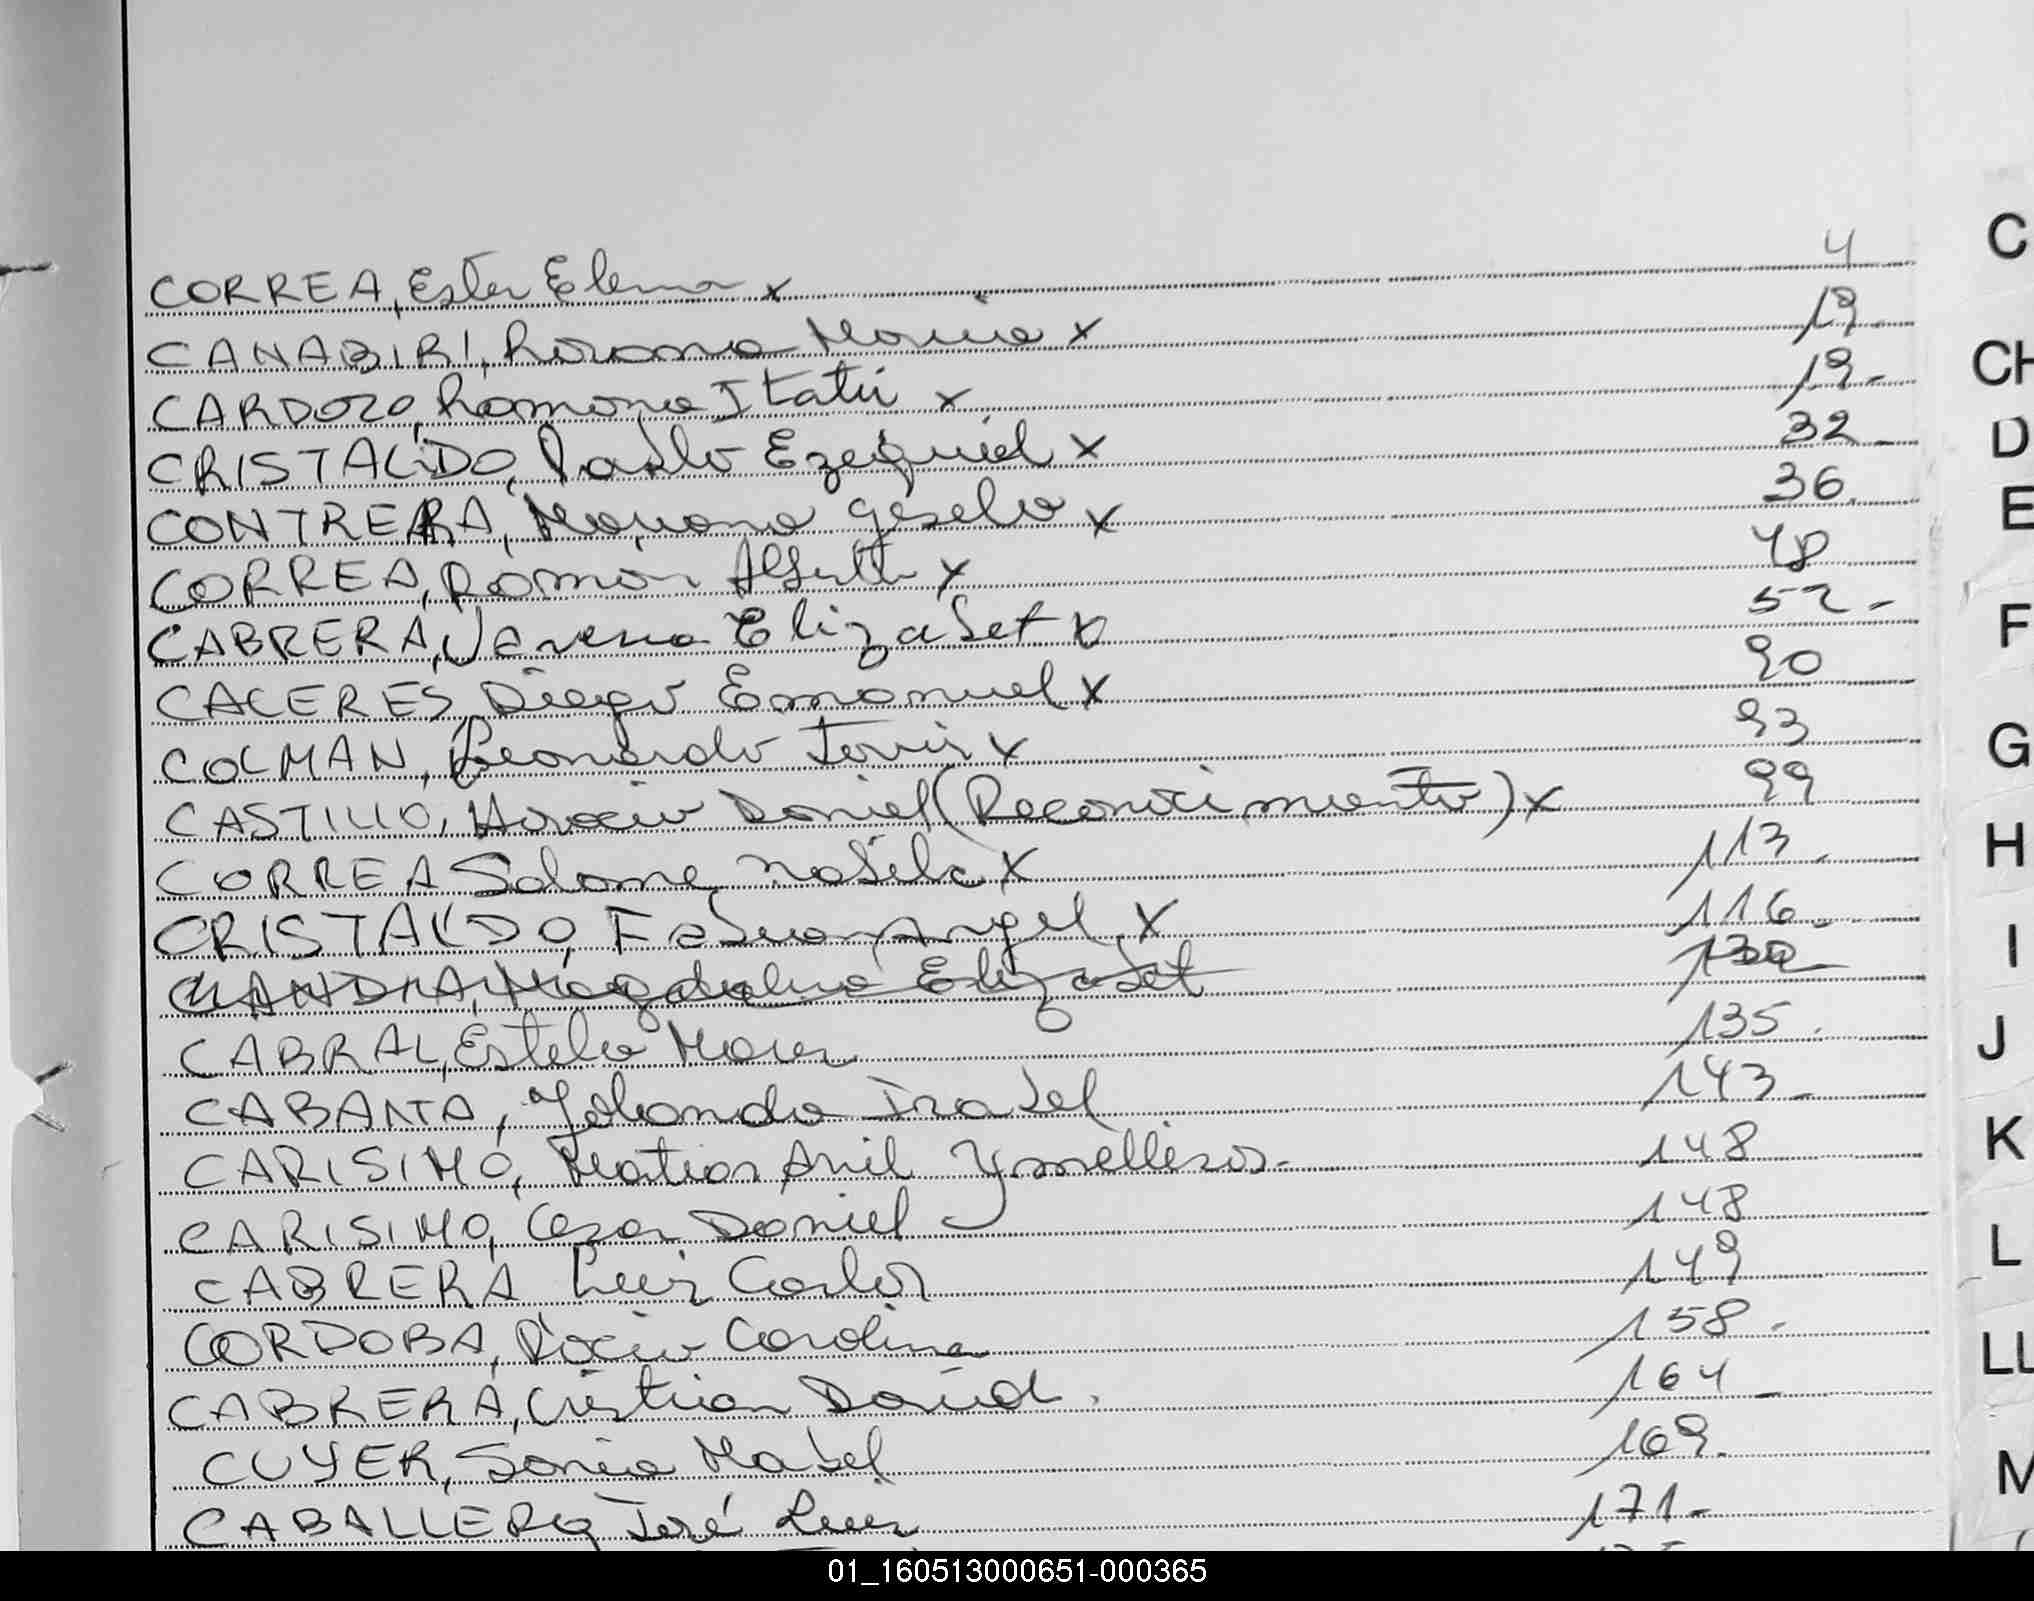 CORREA, Ester Elena x 4
CANABIRI, Rosana Maria x 19.
CARDOZO, Ramona Itatí x 19-
CRISTALDO, Pablo Ezequiel x 32-
CONTRERA, Mariana Gisela x 36.
CORREA, Ramón Alberto x 48
CABRERA, Elizabet x 52-
CACERES, Diego Emanuel x 90
COLMAN, Leonardo x 93
CASTILLO, Horacio Daniel (Reconocimiento) x 99
CORREA Salome x 113.
CRISTALDO, Fabian Angel x 116.
Magdalena Elizabet
CABRAL, Estela 135.
CABAÑA, Yolanda Isabel 143-
CARISIMO, Matias Ariel y mellizos. 148
CARISIMO, Cesar Daniel 148
CABRERA Luis Carlos 149
CORDOBA, Rocio Carolina 158.
CABRERA, Cristian David. 164-
CUYER, Sonia Mabel 169.
CABALLERO, José Luis 171-
C
CH
D
E
F
G
H
I
J
K
L
LL
M
01_160513000651-000365